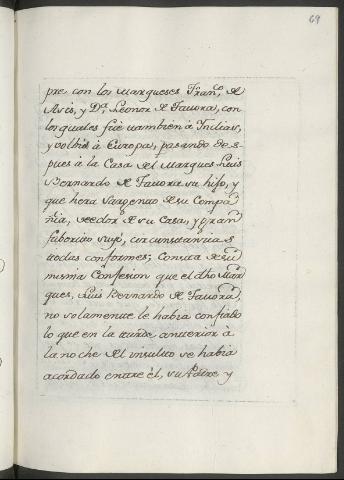 69
pre con los Marqueses Fran.co de
Asis, y D.a Leonor de Tavora, con
los quales fuè tambien à Indias,
y volbiò à Europa, pasando des-
pues à la Casa del Marques Luis
Bernardo de Tavora su hijo, y
que hera Sargento de su Compa
ñia, veedor de su Casa, y gran
faborito suyo, circunstancias
todas conformes; Consta de su
misma Confesion que el dho Mar
ques, Luis Bernardo de Tavora,
no solamente le habia confiado
lo que en la tarde anterior à
la noche del insulto se habia
acordado entre èl, su Padre y